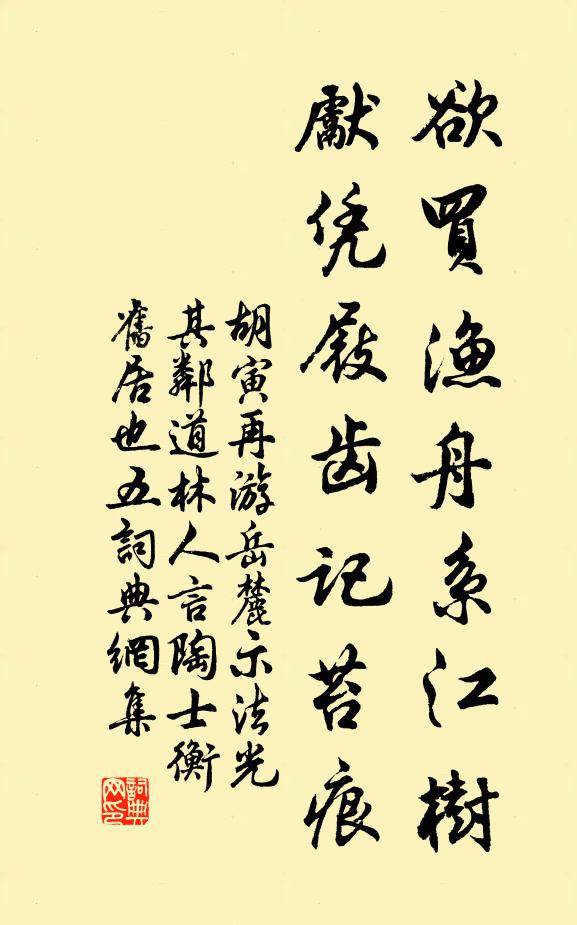 欲買漁舟系江樹
獻凭屐齿記苔痕
胡寅再游岳麓示法光
其鄰道林人言陶士衡
舊居也五詞典網集
詞典
网印